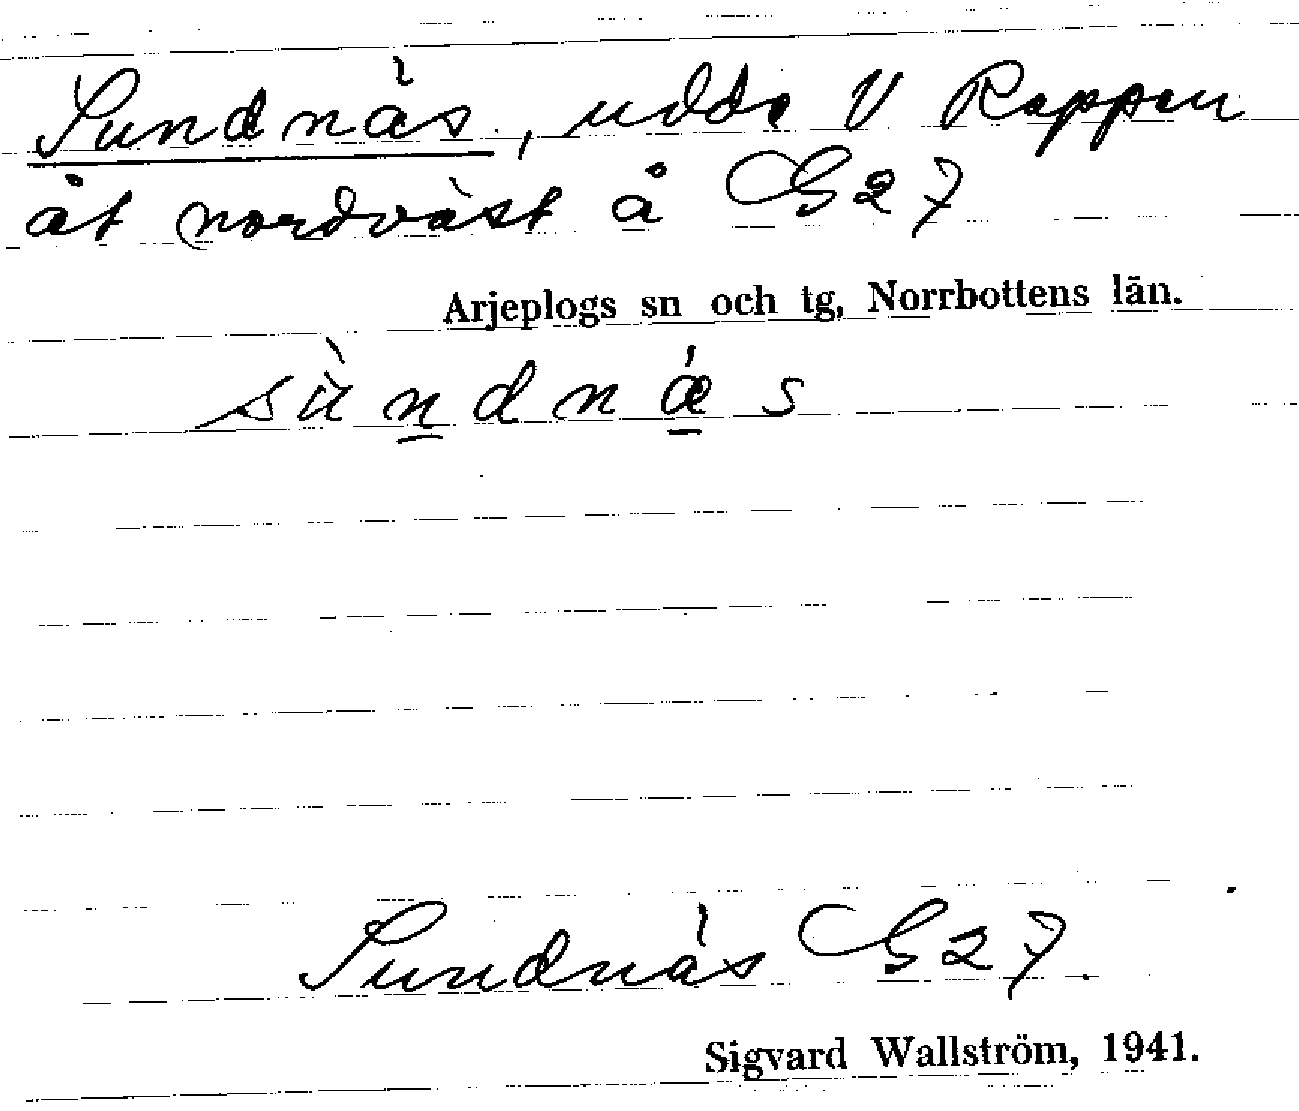 Sundnäs, udde V Rappen
åt nordväst å GS27
Arjeplogs sn och tg, Norrbottens län.
sùndnǽs
Sundnäs GS27.
Sigvard Wallström, 1941.